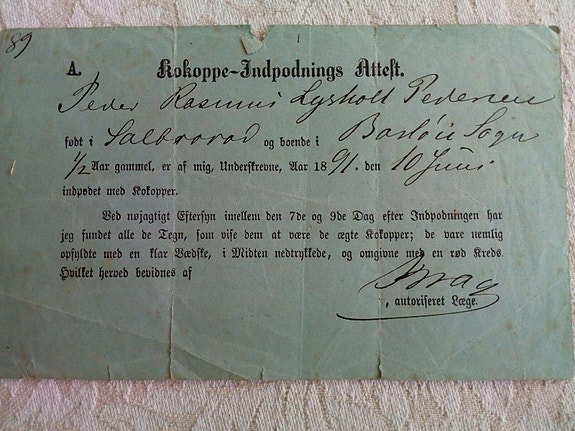 89
A. Kokoppe-Indpodnings Attest.
Peder Rasmus Lysholt Pedersen
født i Salbrovad og boende i Barløse Sogn
1/2 Aar gammel, er af mig, Underskrevne, Aar 1891. den 10 Juni
indpodet med Kokopper.
Ved nøjagtigt Eftersyn imellem den 7de og 9de Dag efter Indpodningen har
jeg fundet alle de Tegn, som vise dem at være de ægte Kokopper; de vare nemlig
opfyldte med en klar Vædske, i Midten nedtrykkede, og omgivne med en rød Kreds.
Hvilket herved bevidnes af
autoriseret Læge.